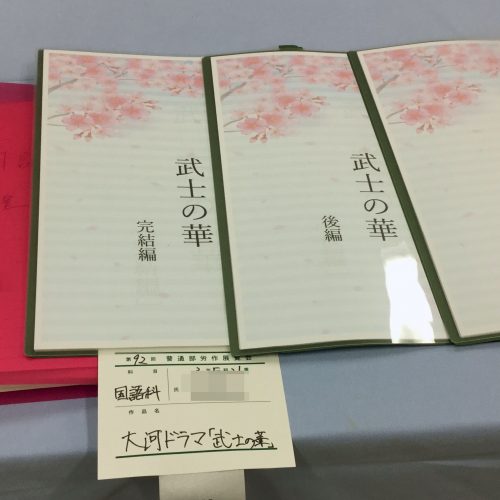 武士の華
完結編
武士の華
後編
第92回 普通部労作展覧会
科目
国語科
氏
作品名
大河ドラマ「武士の華」